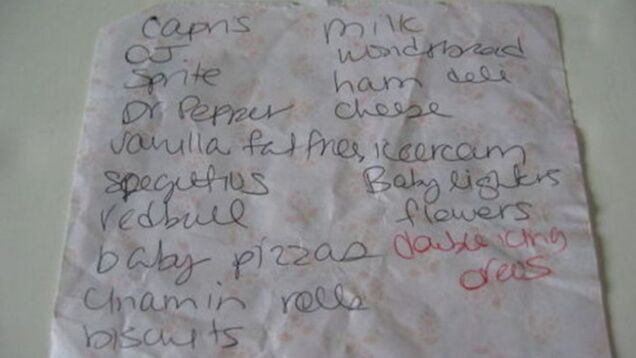 capris
OJ
Sprite
Dr Pepper
vanilla fatfree icecream
spegetti os
redbull
baby pizzas
cinamin rolls
biscuits
milk
wonderbread
ham deli
cheese
Baby lighters
flowers
double icing
oreos